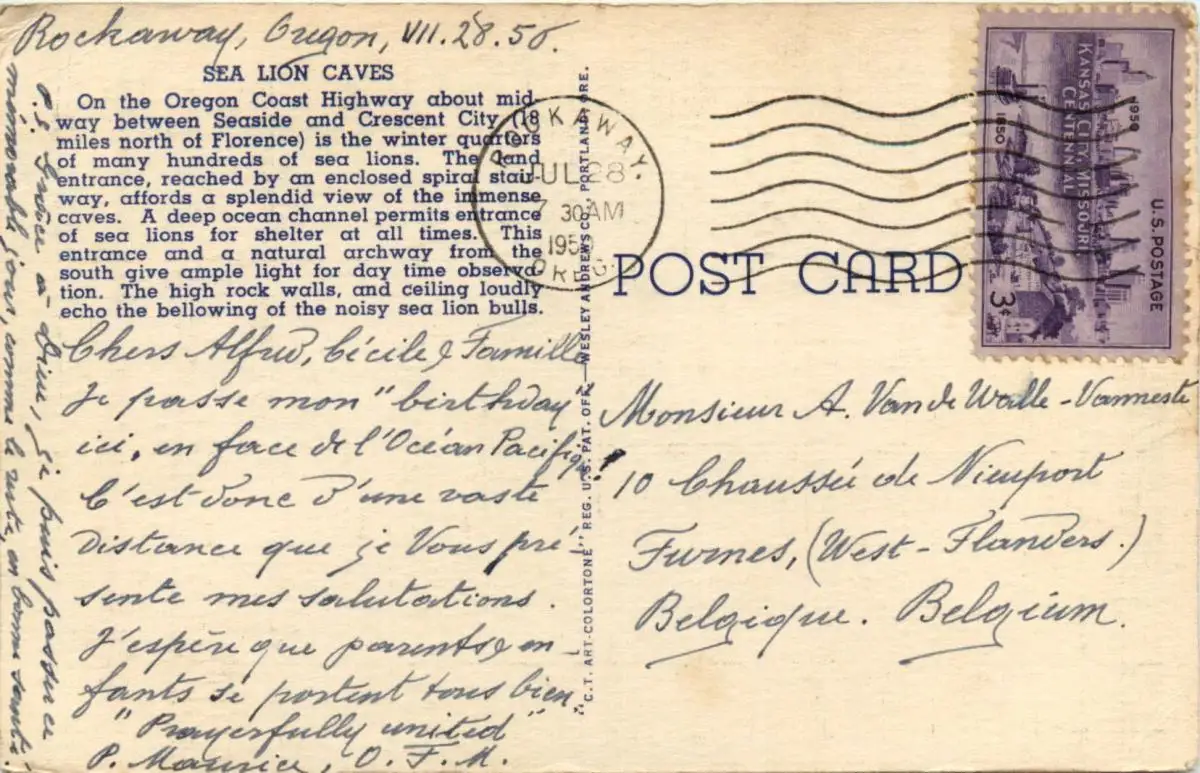 Rockaway, Oregon, VII.28.50.
SEA LION CAVES
On the Oregon Coast Highway about mid-
way between Seaside and Crescent City (18
miles north of Florence) is the winter quarters
of many hundreds of sea lions. The land
entrance, reached by an enclosed spiral stair-
way, affords a splendid view of the immense
caves. A deep ocean channel permits entrance
of sea lions for shelter at all times. This
entrance and a natural archway from the
south give ample light for day time observa-
tion. The high rock walls, and ceiling loudly
echo the bellowing of the noisy sea lion bulls.
Chers Alfred, Cécile & Famille
Je passe mon "birthday
ici, en face de l'Océan Pacifiq
C'est donc d'une vaste
distance que je Vous pré
sente mes salutations.
J'espère que parents & en
fants se portent tous bien
"Prayerfully united"
P. Maurice, O.F.M.
P.S. Grâce à Dieu, je puis passer ce
mémorable jour, comme le reste, en bonne santé.
"C.T. ART-COLORTONE" REG. U.S. PAT. OFF.
WESLEY ANDREWS CO. PORTLAND, ORE.
ROCKAWAY.
JUL 28
7 30AM
1950
OREG.
POST CARD
KANSAS CITY, MISSOURI
CENTENNIAL
1850
1950
U.S. POSTAGE
3¢
Monsieur A. Van de Walle-Vanneste
10 Chaussée de Nieuport
Furnes, (West-Flanders.)
Belgique. Belgium.